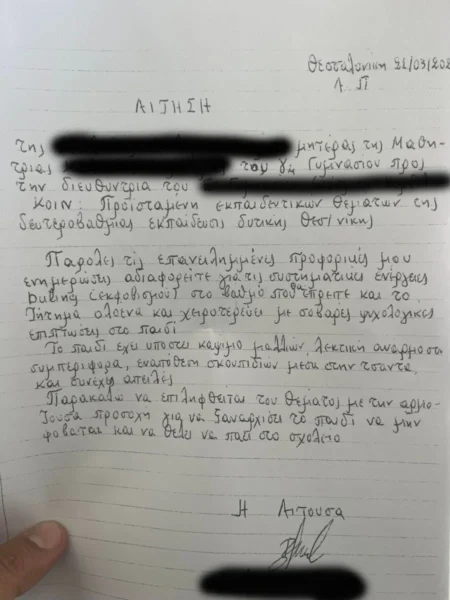 Θεσσαλονίκη 21/03/202
Α Π
ΑΙΤΗΣΗ
της μητέρας της Μαθη-
τριας του γ' Γυμνασιου προς
την διευθυντρια του
ΚΟΙΝ: Προϊσταμενη εκπαιδευτικων θεματων της
δευτεροβαθμιας εκπαιδευσις δυτικης Θεσ/νικης
Παρολες τις επανειλημμένες προφορικές μου
ενημερωσεις αδιαφορειτε για τις συστηματικες ενέργειες
buling (εκφοβισμου) στο βαθμο που επρεπε και το
Ζήτημα ολοενα και χειροτερευει με σοβαρες ψυχολογικες
επιπτωσεις στο παιδι
Το παιδι εχει υποστει καψιμο μαλλιων, λεκτικη αναρμοστη
συμπεριφορα, εναποθεση σκουπιδιων μεσα στην τσαντα,
και συνεχεις απειλες
Παρακαλω να επιληφθειτε του θεματος με την αρμο-
Ζουσα προσοχη για να ξαναρχισει το παιδι να μην
φοβαται και να θελει να παει στο σχολειο
Η Αιτουσα